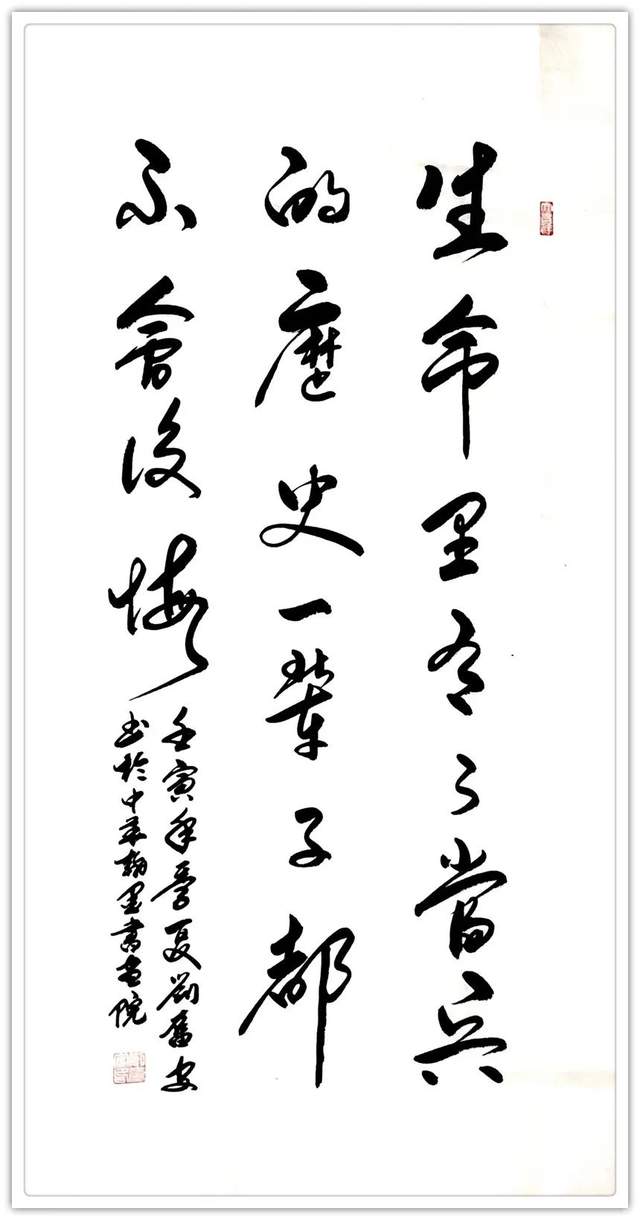 生命里有了當兵
的歷史一輩子都
不會後悔
壬寅年夏劉奮安
书於中華翰墨書畫院